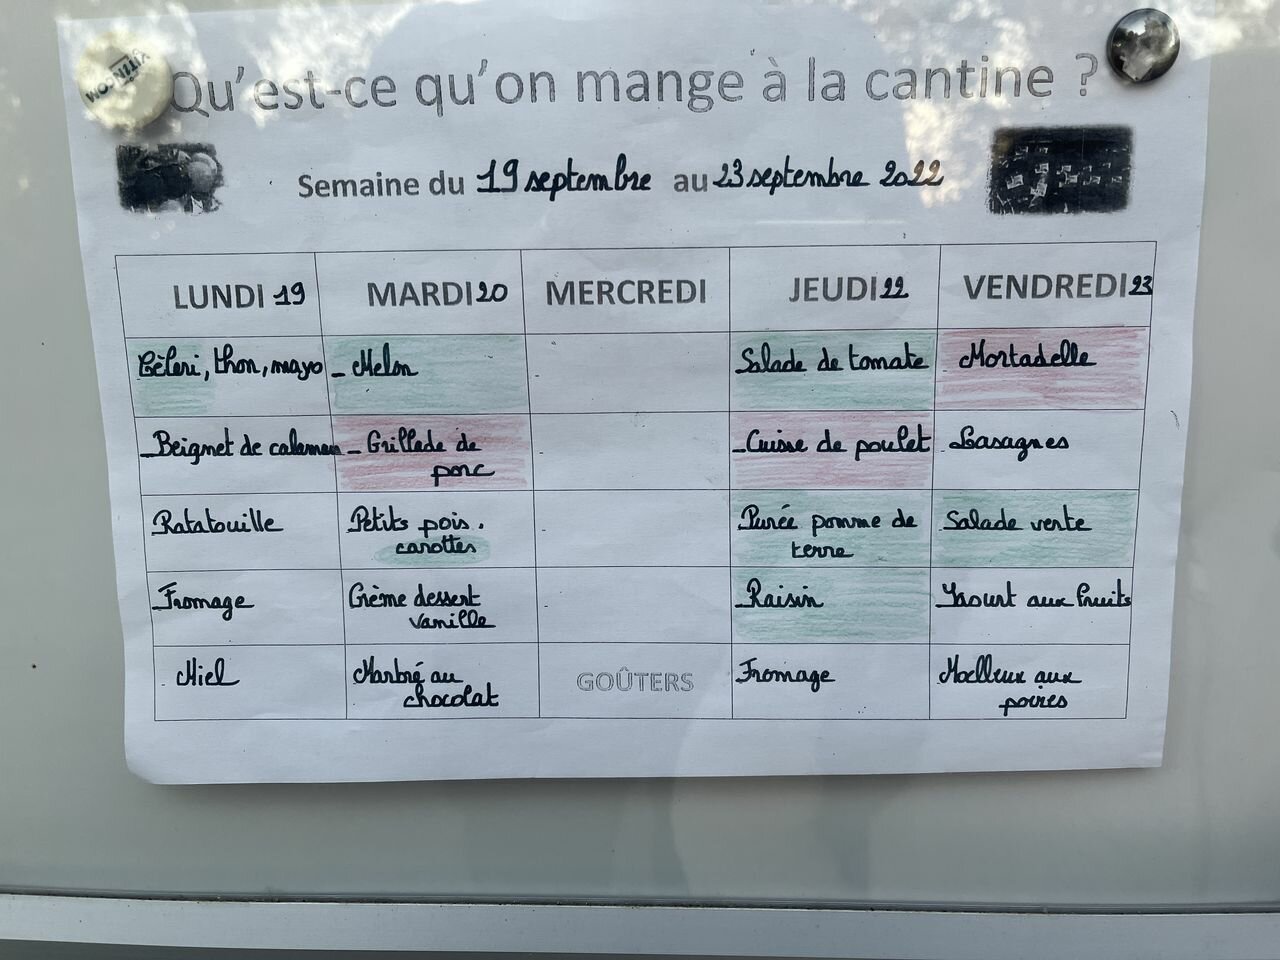 Qu'est-ce qu'on mange à la cantine ?
Semaine du 19 septembre au 23 septembre 2022
LUNDI 19 MARDI 20 MERCREDI JEUDI 22 VENDREDI 23
Cèleri, thon, mayo - Melon - Salade de tomate Mortadelle
- Beignet de calamar - Grillade de porc - - Cuisse de poulet - Lasagnes
Ratatouille Petits pois. carottes - Purée pomme de terre Salade verte
Fromage Crème dessert vanille - Raisin Yaourt aux fruits
. Miel Marbré au chocolat GOÛTERS Fromage Moelleux aux poires